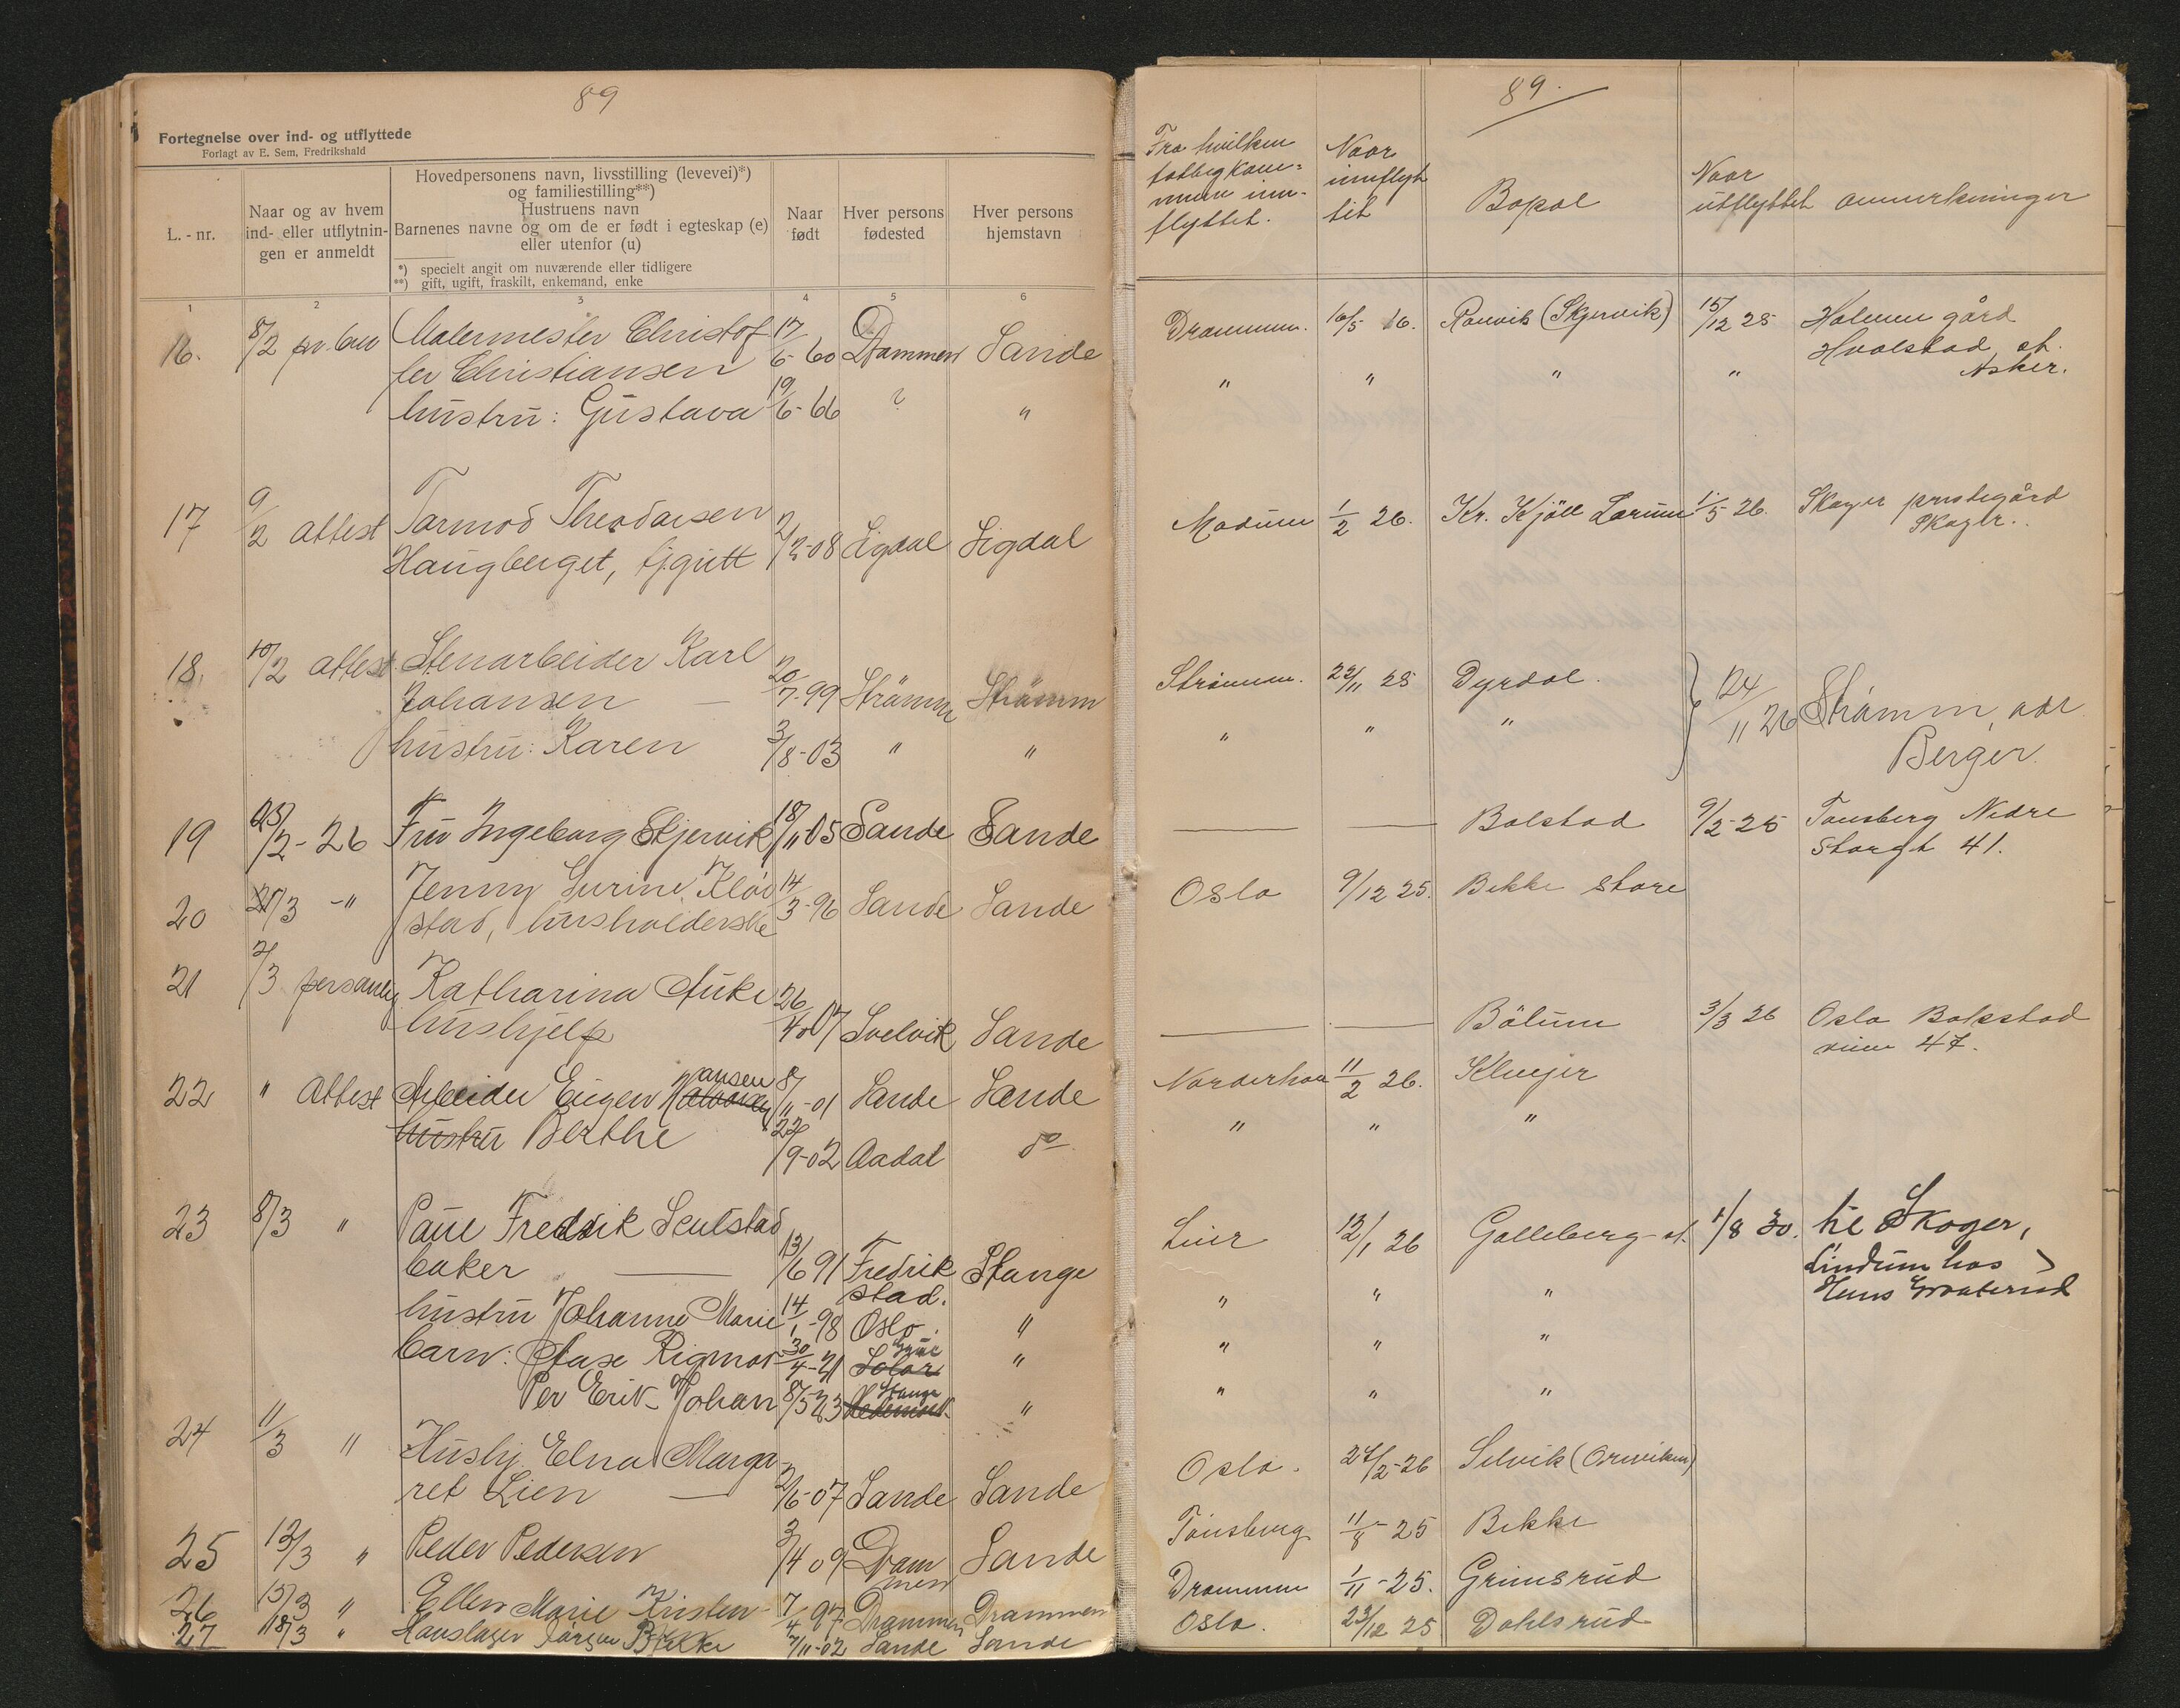 89
Fortegnelse over ind- og utflyttede
Forlagt av E. Sem, Fredrikshald
L. - nr.
Naar og av hvem
ind- eller utflytnin-
gen er anmeldt
Hovedpersonens navn, livsstilling (levevei)*)
og familiestilling**)
Hustruens navn
Barnenes navne og om de er født i egteskap (e)
eller utenfor (u)
*) specielt angit om nuværende eller tidligere
**) gift, ugift, fraskilt, enkemand, enke
Naar
født
Hver persons
fødested
Hver persons
hjemstavn
1 2 3 4 5 6
16. 8/2 pr. brev Malermester Christof 17/6-60 Drammen Sande
fer Christiansen
hustru: Gustava 19/6-66 ? "
17 9/2 attest Tormod Theodorsen 2/12-08 Sigdal Sigdal
Haugberget, tj.gutt
18. 10/2 attest Stenarbeider Karl
Johansen — 20/7-99 Strömm Strömm
hustru: Karen 3/8-03 " "
19 25/2-26 Fru Ingeborg Skjervik 18/11 05 Sande Sande
20 2/3 -" Jenny Surine Klov
stad, husholderske 14/3-96 Sande Sande
21 2/3 personlig Katharina Auke 26/4-07 Svelvik Sande
hushjelp
22 " Attest Arbeider Eugen Hansen 8/11-01 Sande Sande
hustru Berthe 22/9-02 Aadal do
23 8/3 " Paul Fredrik Seulstad
baker — 13/6 91 Fredrik Stange
stad.
hustru Johanne Marie 14/1-98 Oslo. "
barn: Aase Rigmor 30/4-21 Solør Grue "
Per Erik Johan 8/5-23 Hedemark Stange "
24 11/3 " Hushj. Elna Marga-
ret Lien — 2/6-07 Sande Sande
25 12/3 " Peder Pedersen 3/4 09 Dram Sande
men
26 15/3 " Ellen Marie Kristen- 7/4-97 Drammen Drammen
27 18/3 " Hovslager Jörgen Bekke 7/11-02 Sande Sande
89.
Fra hvilken
fattigkom=
mune inn-
flyttet.
Naar
innflyt
tit
Bopæl
Naar
utflyttet
anmerkninger
Drammen. 16/5 16. Ranvik (Skjervik) 15/12 25 Holmen gård
Hvalstad st.
Asker.
" " " "
Modum 1/2 26. Kr. Kjöll Lorum 1/5 26. Skoger prestegård
Skoger.
Strömm. 22/11 25 Dyrdal. } 24/11 26 Strömm, adr
" " " Berger.
— — Bolstad 9/2-25 Tønsberg Nedre
Storgt 41.
Oslo 9/12 25. Bekke store
— — Bölum 3/3 26 Oslo Bakstad
vien 47.
Norderhov 11/2 26. Klever
" " "
Lier 12/1 26 Galleberg st. 1/8 30. til Skoger,
Lindum hos
Hans Graaterud
" " "
" " "
" " "
Oslo. 24/2-26 Selvik (Orreviken)
Tønsberg 11/8-25 Bekke
Drammen 1/11-25. Grimsrud
Oslo. 23/12 25 Dahlsrud